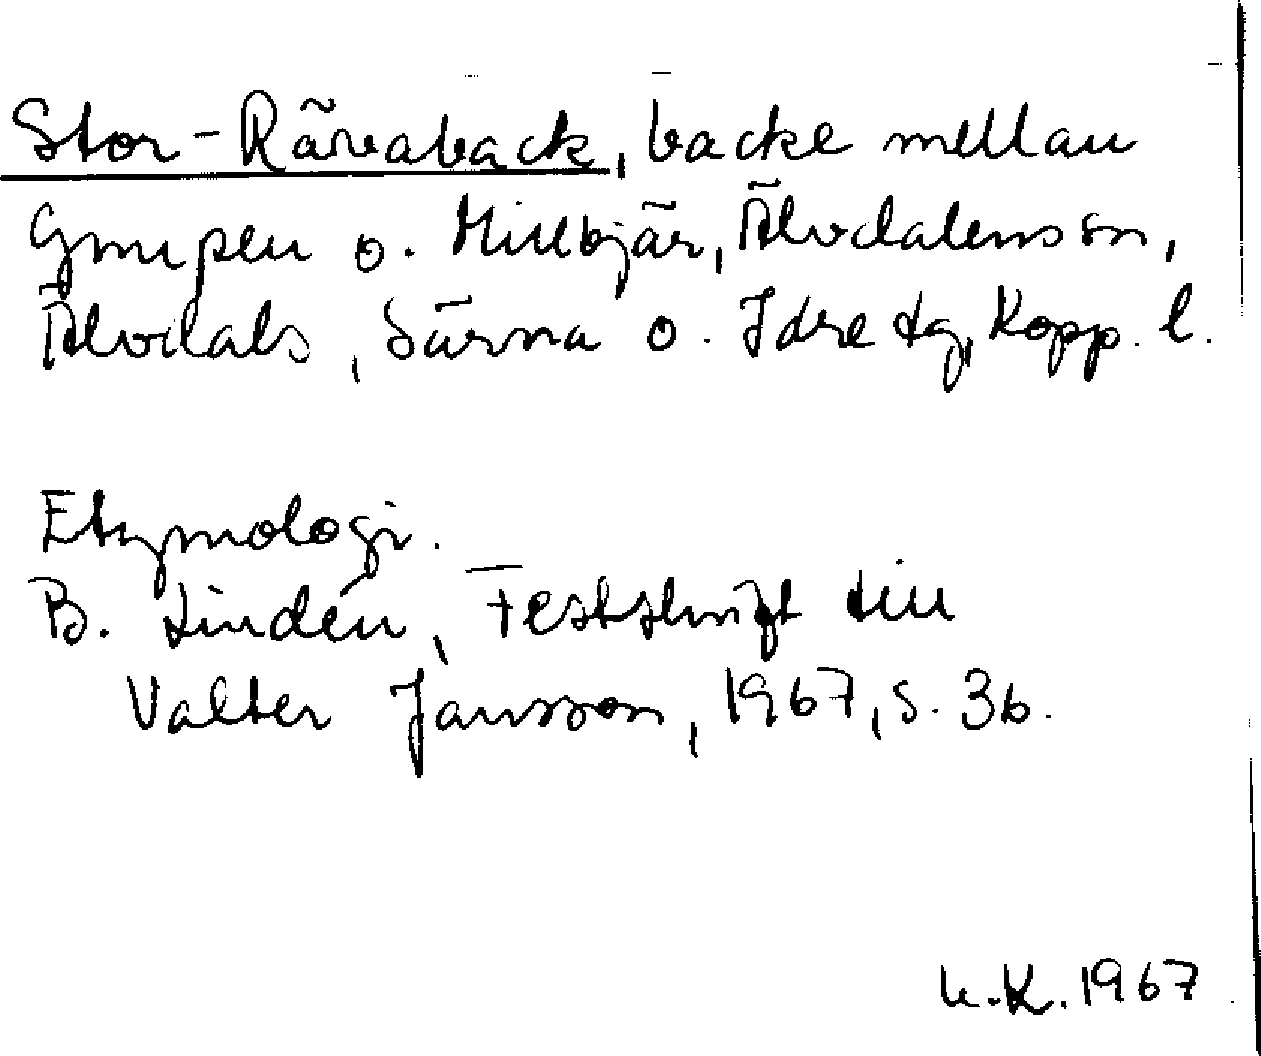 Stor-Rävaback, backe mellan
o. Millbjär, Älvdalens sn,
Älvdals, Särna o. Idre tg, Kopp. l.
Etymologi.
B. Lindén, Festskrift till
Valter Jansson, 1967, s. 36.
K. 1967